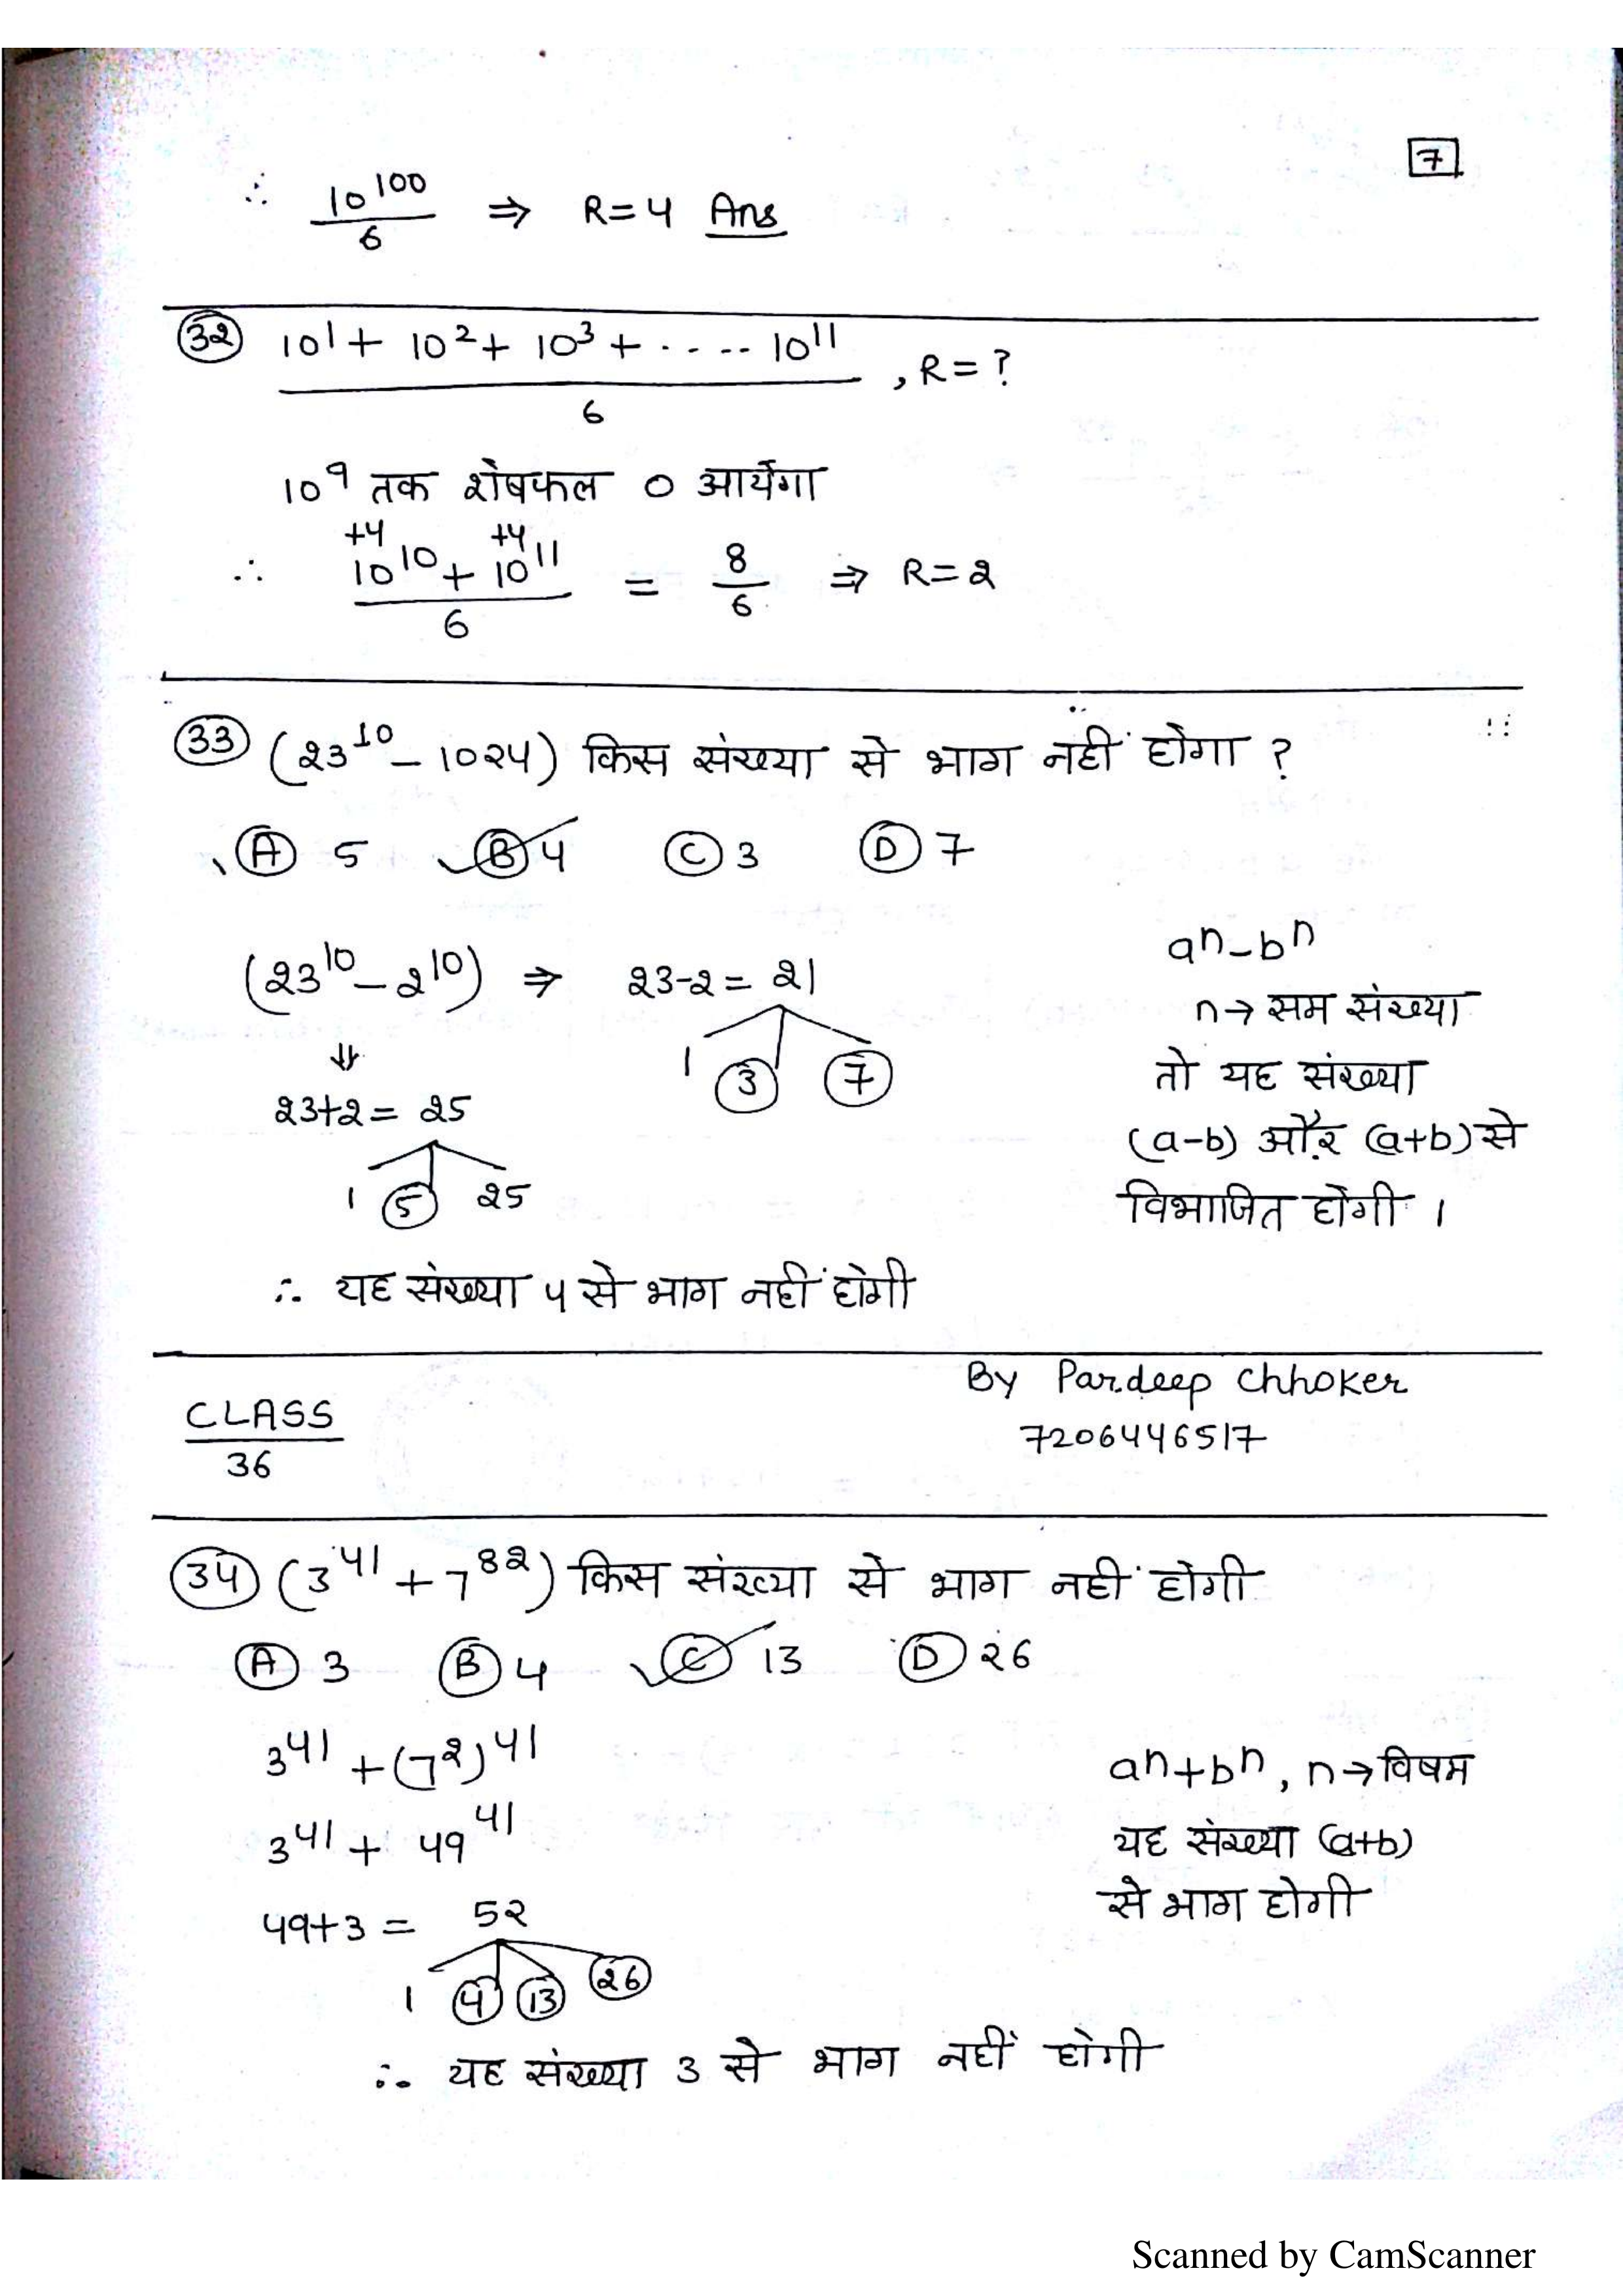 7
∴ 10^100 / 6 ⇒ R=4 Ans
32 10^1 + 10^2 + 10^3 + ..... 10^11 / 6 , R=?
10^9 तक शेषफल 0 आयेगा
+4 +4
∴ 10^10 + 10^11 / 6 = 8/6 ⇒ R=2
33 (23^10 - 1024) किस संख्या से भाग नहीं होगा ?
A 5 B 4 C 3 D 7
(23^10 - 2^10) ⇒ 23-2 = 21
1 3 7
⇓
23+2 = 25
1 5 25
a^n - b^n
n→ सम संख्या
तो यह संख्या
(a-b) और (a+b) से
विभाजित होगी ।
∴ यह संख्या 4 से भाग नहीं होगी
By Pardeep Chhoker
7206446517
CLASS
36
34 (3^41 + 7^82) किस संख्या से भाग नही होगी
A 3 B 4 C 13 D 26
3^41 + (7^2)^41
3^41 + 49^41
49+3 = 52
1 4 13 26
a^n + b^n, n→ विषम
यह संख्या (a+b)
से भाग होगी
∴ यह संख्या 3 से भाग नहीं होगी
Scanned by CamScanner